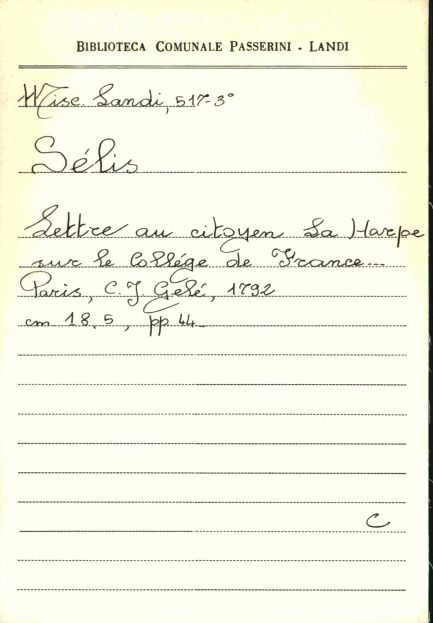 BIBLIOTECA COMUNALE PASSERINI - LANDI
Misc. Landi, 517-3°
Sélis
Lettre au citoyen La Harpe
sur le Collége de France...
Paris, C. J. Gelé, 1792
cm 18,5, pp. 44
C